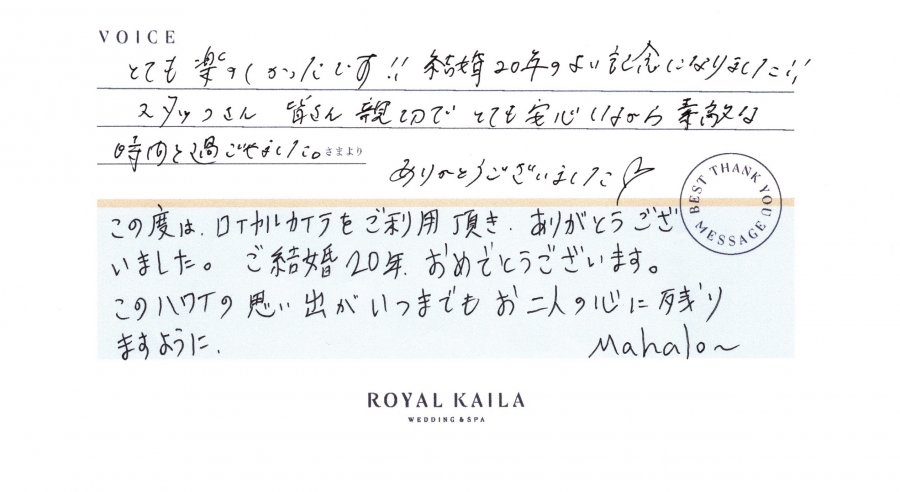 VOICE
とても楽しかったです!! 結婚20年のよい記念になりました!!
スタッフさん 皆さん親切で とても安心しながら 素敵な
時間を過ごせました。さまより
ありがとうございました
BEST THANK YOU MESSAGE
この度は、ロイヤルカイラをご利用頂き、ありがとうござ
いました。ご結婚20年、おめでとうございます。
このハワイの思い出がいつまでもお二人の心に残り
ますように、
Mahalo~
ROYAL KAILA
WEDDING & SPA